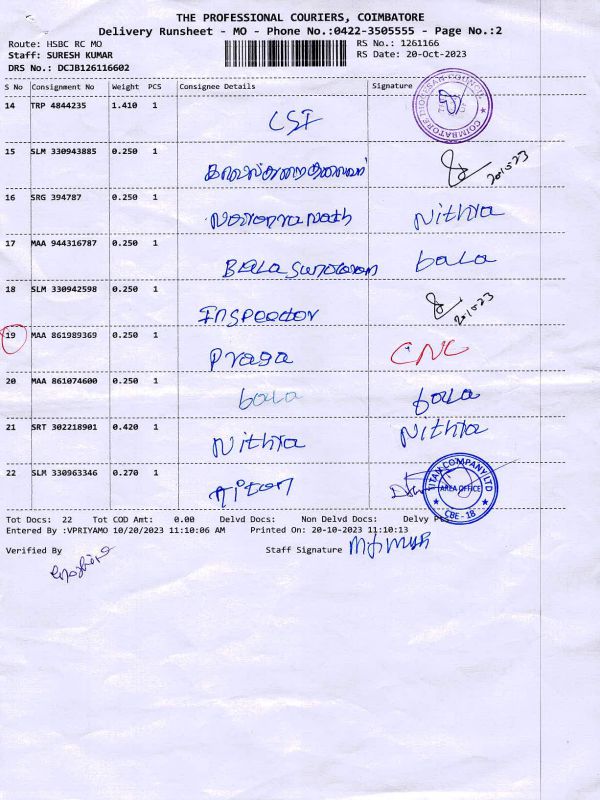 THE PROFESSIONAL COURIERS, COIMBATORE
Delivery Runsheet - MO - Phone No.:0422-3505555 - Page No.:2
Route: HSBC RC MO RS No.: 1261166
Staff: SURESH KUMAR RS Date: 20-Oct-2023
DRS No.: DCJB126116602
S No Consignment No Weight PCS Consignee Details Signature
14 TRP 4844235 1.410 1 CSI
COIMBATORE DIOCESAN COUNCIL
15 SLM 330943885 0.250 1
201023
16 SRG 394787 0.250 1 Nithra
17 MAA 944316787 0.250 1 Bala Sundaram bala
18 SLM 330942598 0.250 1 Inspector
201023
19 MAA 861989369 0.250 1 Praga CNC
20 MAA 861074600 0.250 1 bala bala
21 SRT 302218901 0.420 1 Nithra Nithra
22 SLM 330963346 0.270 1 Titan
TITAN COMPANY LTD
AREA OFFICE
CBE - 18
Tot Docs: 22 Tot COD Amt: 0.00 Delvd Docs: Non Delvd Docs: Delvy Pt
Entered By :VPRIYAMO 10/20/2023 11:10:06 AM Printed On: 20-10-2023 11:10:13
Verified By Staff Signature